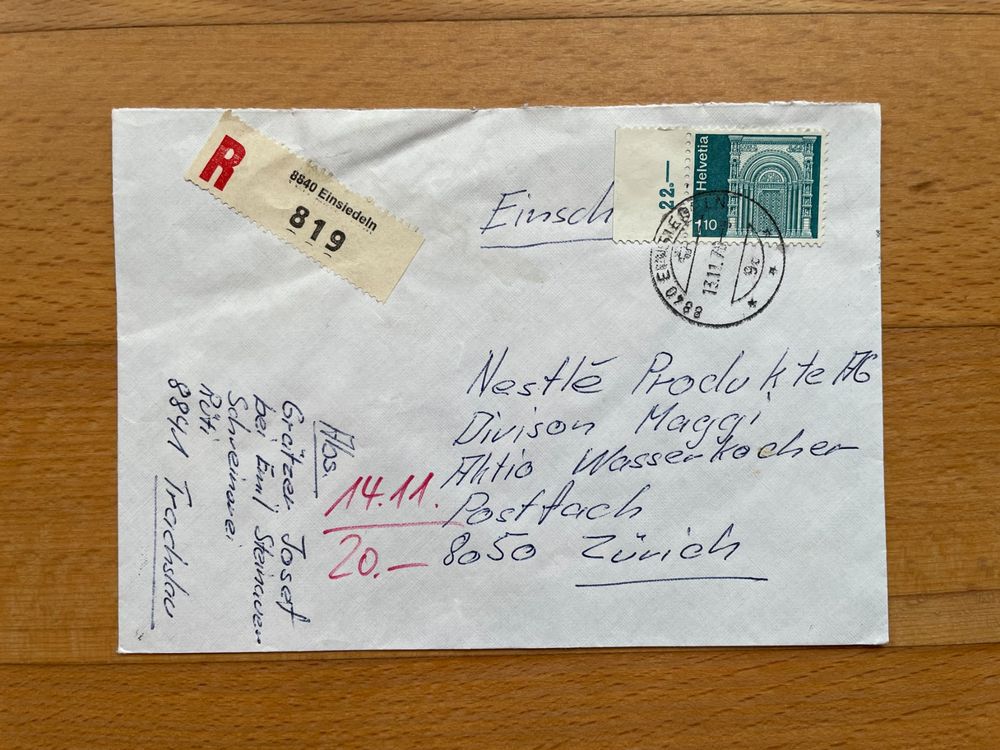 R
8840 Einsiedeln
819
Einsch
22.—
Helvetia
110
8840 EINSIEDELN
13.11.
Nestlé Produkte AG
Divison Maggi
Aktio Wasserkocher
Postfach
8050 Zürich
14.11.
20.—
Abs.
Grätzer Josef
bei Emil Steinauer
Schreinerei
Rüti
8841 Trachslau